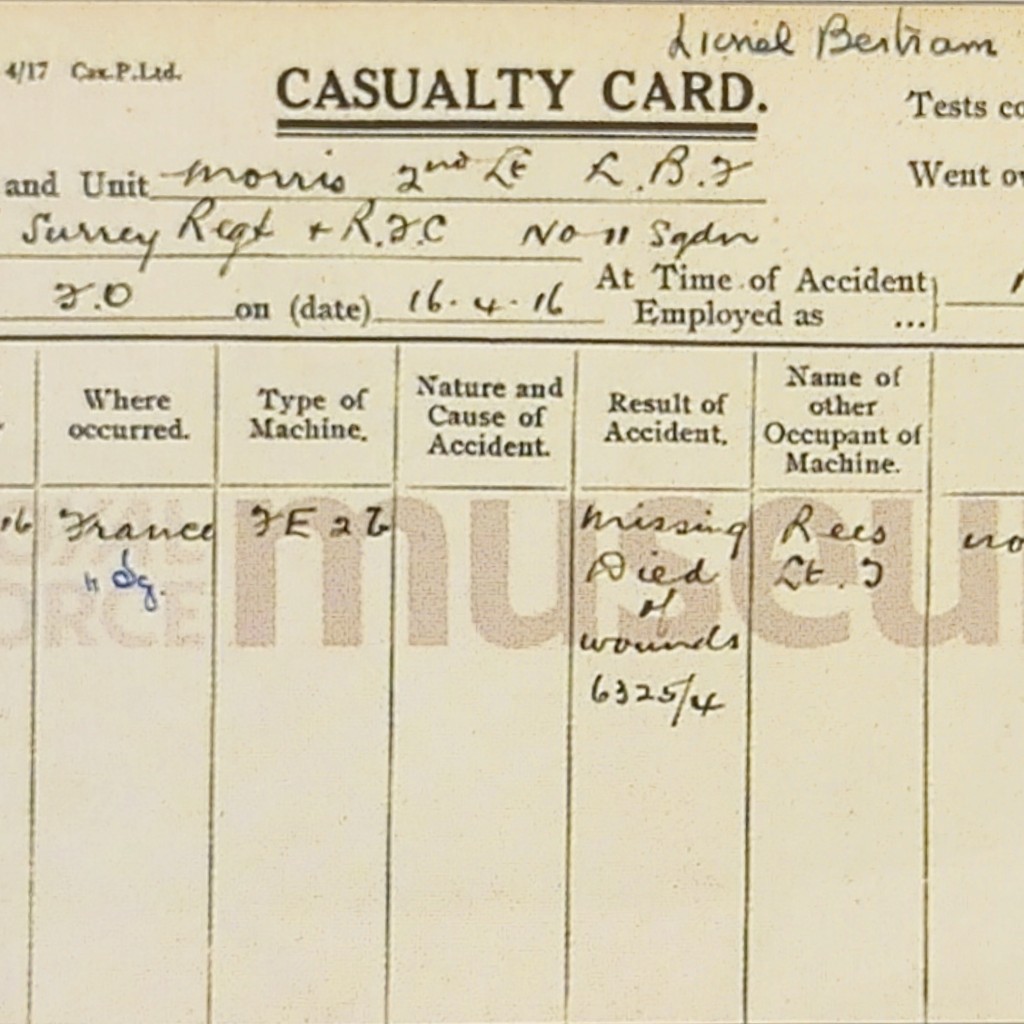 Lionel Bertram
4/17 Cax.P.Ltd.
CASUALTY CARD.
Tests co
and Unit Morris 2nd Lt L.B.F
Went ov
Surrey Regt + R.F.C No 11 Sqdn
F.O on (date) 16.4.16 At Time of Accident
Employed as ...
Where occurred.
Type of Machine.
Nature and Cause of Accident.
Result of Accident.
Name of other Occupant of Machine.
16 France FE2b Missing Rees
" Sq. Died Lt. T
of
wounds
6325/4
museu